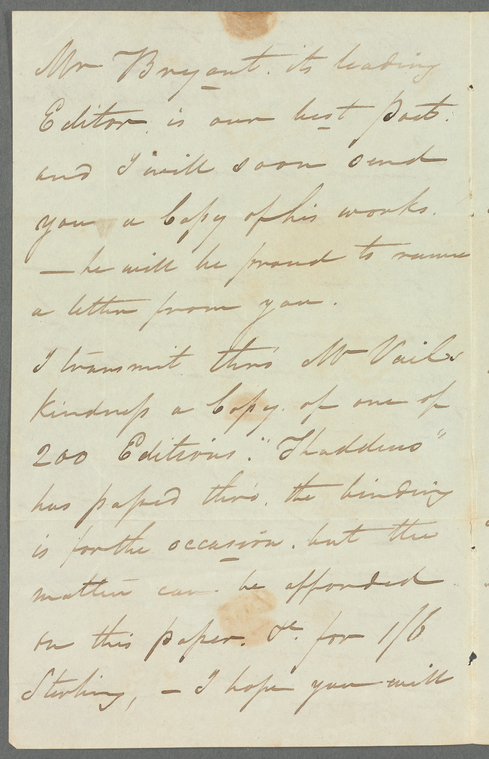 Mr Bryant. its leading
Editor. is our best poet.
and I will soon send
you a Copy of his works.
— he will be proud to
a letter from you.
I transmit thro' Mr Vail's
Kindness a Copy. of one of
200 Editions. "Thaddeus"
has passed thro'. the binding
is for the occasion. but the
matter can be afforded
on this paper. &c. for 1/6
Sterling, — I hope you will